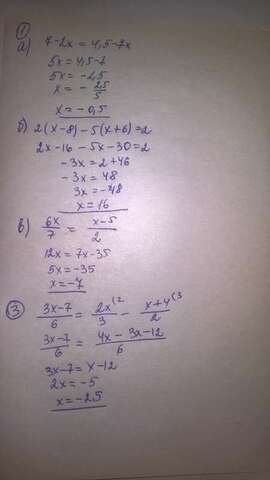 1
а) 7-2x = 4,5-7x
5x = 4,5-7
5x = -2,5
x = - 2,5/5
x = -0,5
б) 2(x-8)-5(x+6)=2
2x-16-5x-30=2
-3x = 2+46
-3x = 48
3x = -48
x = 16
в) 6x/7 = x-5/2
12x = 7x-35
5x = -35
x = -7
3 3x-7/6 = 2x(2/3 - x+4(3/2
3x-7/6 = 4x-3x-12/6
3x-7 = x-12
2x = -5
x = -2,5